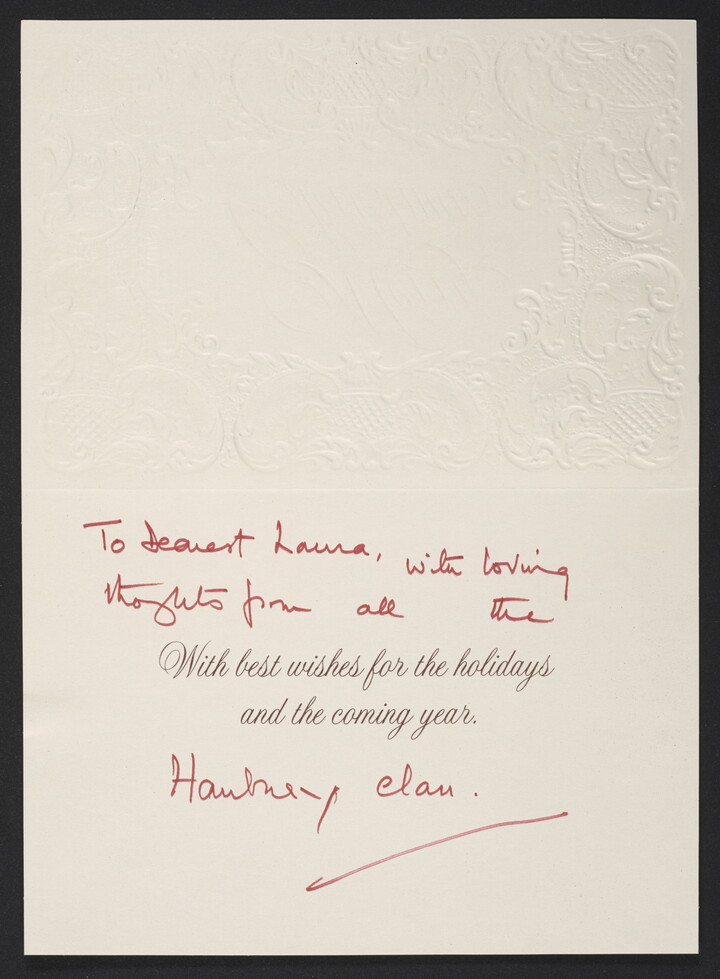 To Dearest Laura, with loving
thoughts from all the
With best wishes for the holidays
and the coming year.
clan.